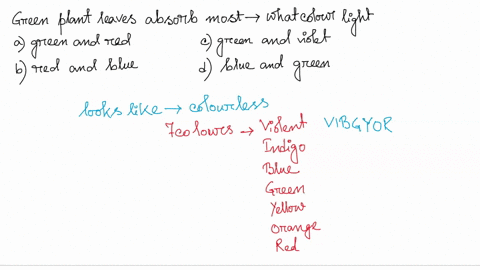 Green plant leaves absorb most → what colour light
a) green and red c) green and violet
b) red and blue d) blue and green
looks like → colourless
7 colours → Violent VIBGYOR
Indigo
Blue
Green
Yellow
Orange
Red